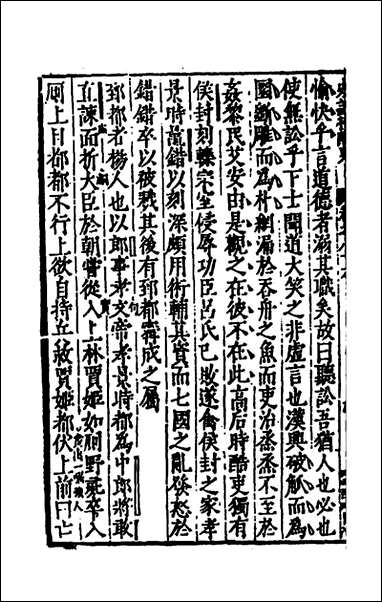 愉快乎言道德者溺其職矣故曰聽訟吾猶人也必也
使無訟乎下士聞道大笑之非虛言也漢興破觚而為
圜斲雕而為朴網漏於吞舟之魚而吏治烝烝不至於
姦黎民艾安由是觀之在彼不在此高后時酷吏獨有
侯封刻轢宗室侵辱功臣呂氏已敗遂禽侯封之家孝
景時鼂錯以刻深頗用術輔其資而七國之亂發怒於
錯錯卒以被戮其後有郅都甯成之屬
郅都者楊人也以郎事孝文帝孝景時都為中郎將敢
直諫面折大臣於朝嘗從入上林賈姬如廁野彘卒入
廁上目都都不行上欲自持兵救賈姬都伏上前曰亡